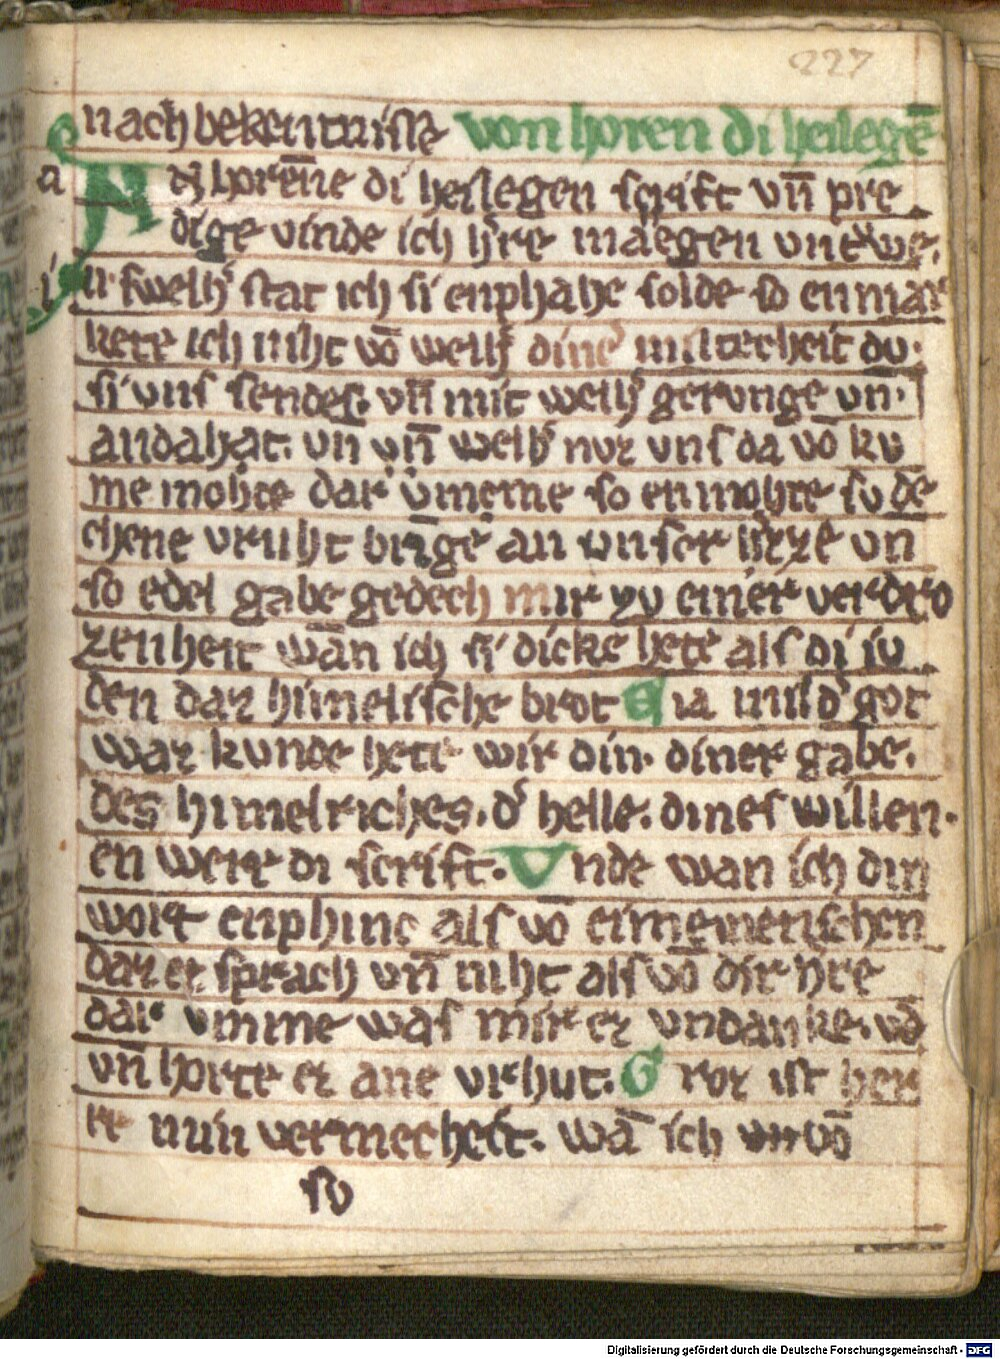 227
nach bekentnisse von horen di heilegē
a Az horēne di heilegen scrift vn̄ pre
dige vinde ich h̾re maegen vnt we
i n· swelh̾ stat ich si enphahe solde so en mar
kete ich niht vō welh̾ din̾ milterheit du·
si vns sendes. vn̄ mit welh̾ gerunge vn·
andahat. vn vn̄ welh̾ nuz vns da vō ku
me mohte dar v̄merne so en mohte su de
chene vruht bringe an vnser h̾ze vn
so edel gabe gedech mir zu einer verdro
zenheit wān ich si dicke hete als di iu
den daz himelische brot Eia mild̾ got
waz kunde hete wir din· diner gabe.
des himelriches. d̾ helle. dines willen·
en were di scrift. Vnde wan ich din
wort enphinc als vō eimemenschen
daz er sprach vn̄ niht als vō dir h̾re
dar vmme was mir ez vndanke. vō
vn̄ horte ez ane vrhut. Groz ist her
re min vermecheit. wā ich vn vō
su
Digitalisierung gefördert durch die Deutsche Forschungsgemeinschaft - DFG